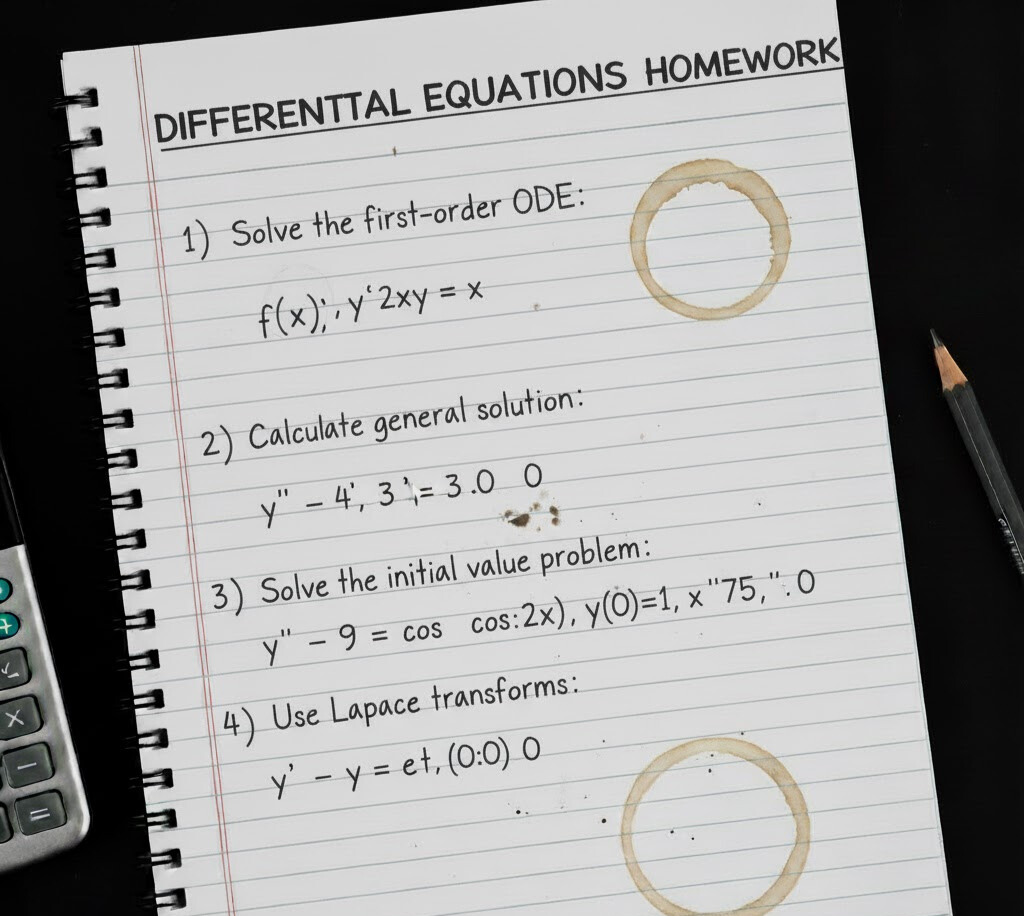 DIFFERENTTAL EQUATIONS HOMEWORK
1) Solve the first-order ODE:
f(x);, y‘2xy = x
2) Calculate general solution:
y" - 4', 3 ',= 3.0 0
3) Solve the initial value problem:
y" - 9 = cos cos:2x), y(0)=1, x "75,". 0
4) Use Lapace transforms:
y' - y = et, (0:0) 0
+
×
−
=